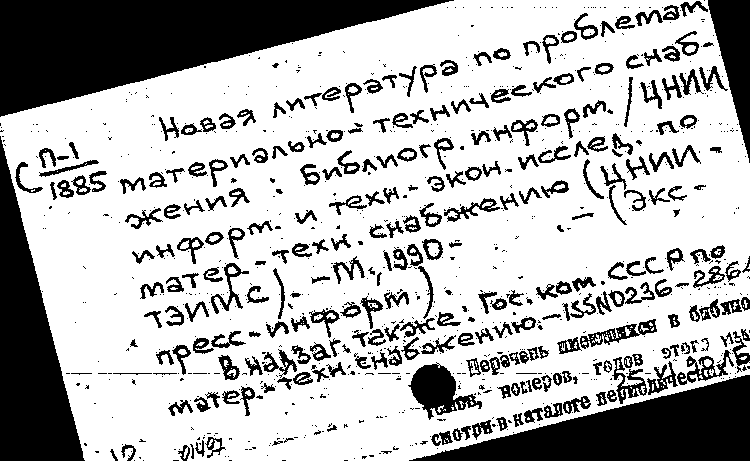 Новая литература по проблемам
С П-1/1885
материально-технического снаб-
жения : Библиогр. информ. / ЦНИИ
информ. и техн.-экон. исслед. по
матер.-техн. снабжению (ЦНИИ-
ТЭИМС). - М., 1990. - . - (Экс-
пресс-информ).
В надзаг. также: Гос. ком. СССР по
матер.-техн. снабжению. - ISSN0236-2864
Перечень имеющихся в библио
томов, номеров, годов этого
смотри в каталоге периодических
25 VI 90
12 01497